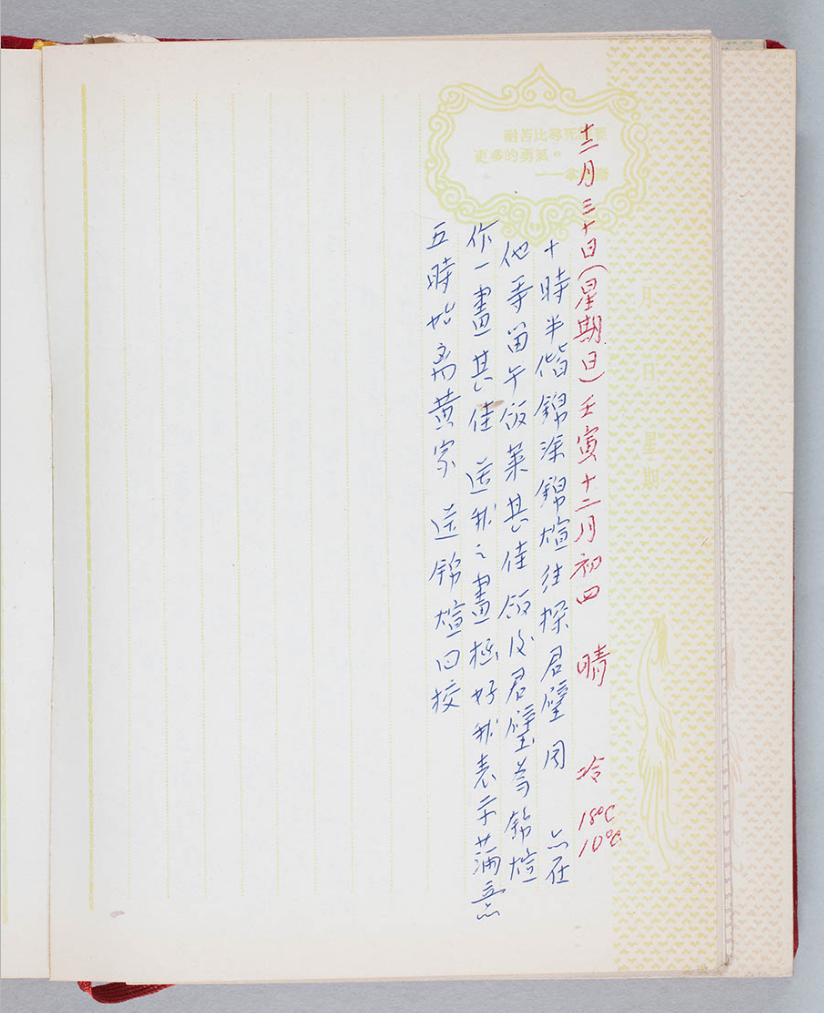 耐苦比尋死需要
更多的勇氣。
月 日 星期
十二月三十日(星期日)壬寅十二月初四 晴 冷 18°C 10°C
十時半偕錦添錦煊往探君璧 同 六在
他等留午飯菜甚佳 飯後君璧為錦煊
作一畫甚佳 送我之畫極好我表示滿意
五時始离黃家 送錦煊回校